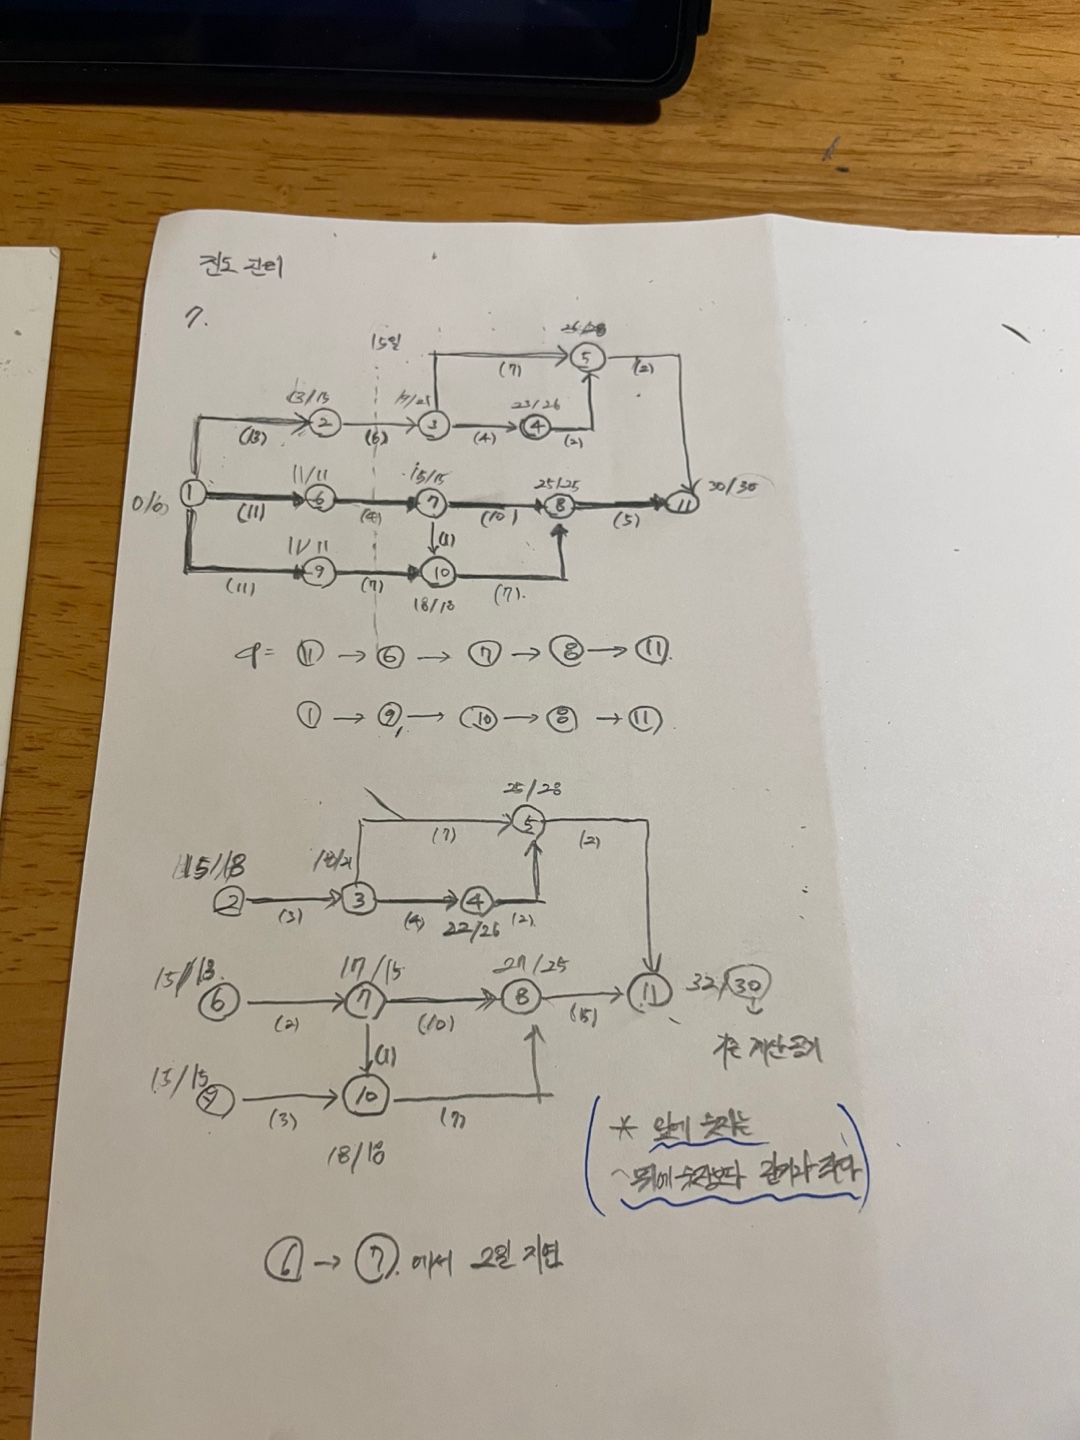 진도 관리
7.
15일
26/28
(7)
5
(2)
13/15
23/26
(13)
2
(6)
3
(4)
4
(2)
11/11
15/15
25/25
30/30
0/0
1
(11)
6
(4)
7
(10)
8
(5)
11
11/11
(1)
(11)
9
(7)
10
(7)
18/18
CP= 11 → 6 → 7 → 8 → 11
1 → 9 → 10 → 8 → 11
25/28
(7)
5
(2)
15/18
18/21
2
(3)
3
(4)
4
(2)
22/26
15/13
17/15
27/25
32/30
6
(2)
7
(10)
8
(15)
11
계산공기
15/15
(1)
9
(3)
10
(7)
18/18
* 앞에 숫자는
뒤에 숫자보다 같거나 작다
6 → 7 에서 2일 지연